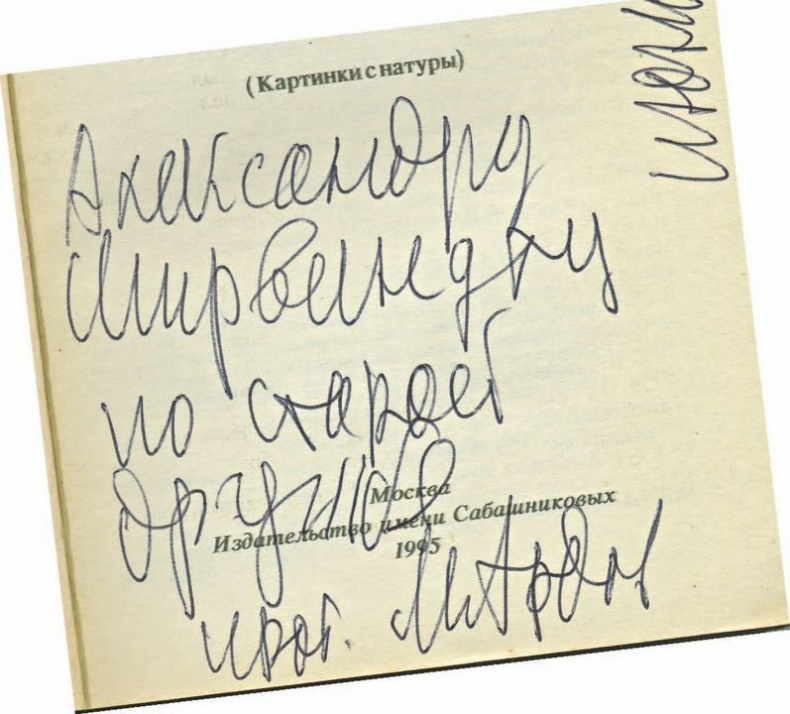 (Картинки с натуры)
Александру
Ширвиндту
по старой
дружбе
Москва
Издательство имени Сабашниковых
1995
прот. М. Ардов